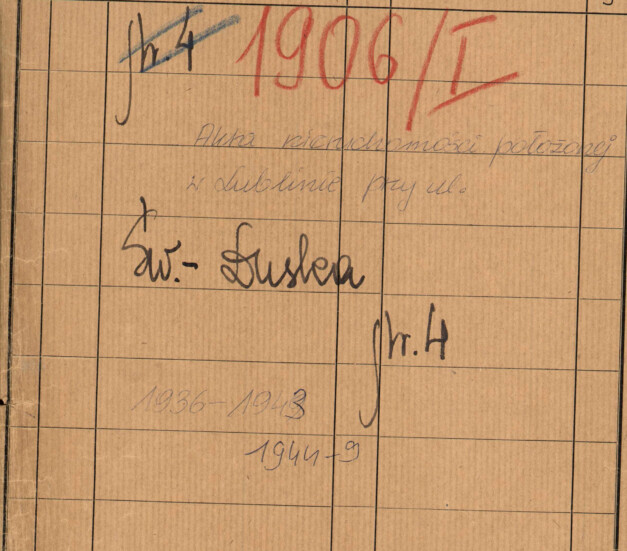 Nr. 4 1906/I
Akta nieruchomości położonej
w Lublinie przy ul.
Św.- Duska
Nr. 4
1936-1943
1944-9